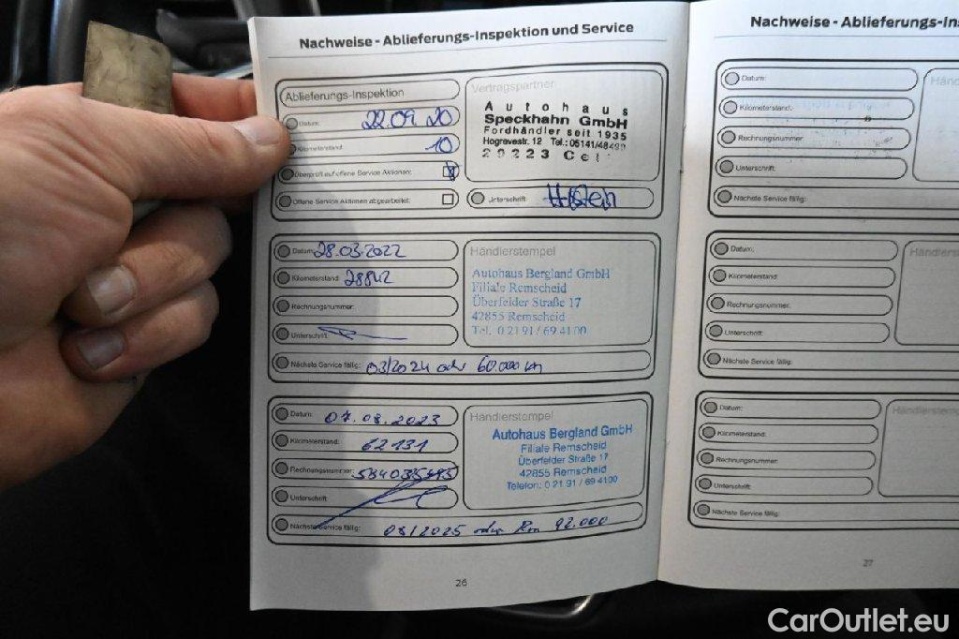 Nachweise - Ablieferungs-Inspektion und Service
Ablieferungs-Inspektion
Datum: 22.09.20
Kilometerstand: 10
Überprüft auf offene Service Aktionen:
Offene Service Aktionen abgearbeitet:
Vertragspartner
Autohaus
Speckhahn GmbH
Fordhändler seit 1935
Hogrevestr. 12 Tel.: 05141/48499
29223
Unterschrift:
Datum: 28.03.2022
Kilometerstand: 28842
Rechnungsnummer:
Unterschrift:
Nächste Service fällig: 03/2024 oder 60.000 km
Händlerstempel
Autohaus Bergland GmbH
Filiale Remscheid
Überfelder Straße 17
42855 Remscheid
Tel. 0 21 91 / 69 41 00
Datum: 07.08.2023
Kilometerstand: 62131
Rechnungsnummer:
Unterschrift:
Nächste Service fällig: 08/2025 oder Km 92.000
Händlerstempel
Autohaus Bergland GmbH
Filiale Remscheid
Überfelder Straße 17
42855 Remscheid
Telefon: 0 21 91 / 69 41 00
26
Nachweise - Ablieferungs-In
Datum:
Kilometerstand:
Rechnungsnummer:
Unterschrift:
Nächste Service fällig:
Händ
Datum:
Kilometerstand:
Rechnungsnummer:
Unterschrift:
Nächste Service fällig:
Händlers
Datum:
Kilometerstand:
Rechnungsnummer:
Unterschrift:
Nächste Service fällig:
Händlerste
27
CarOutlet.eu